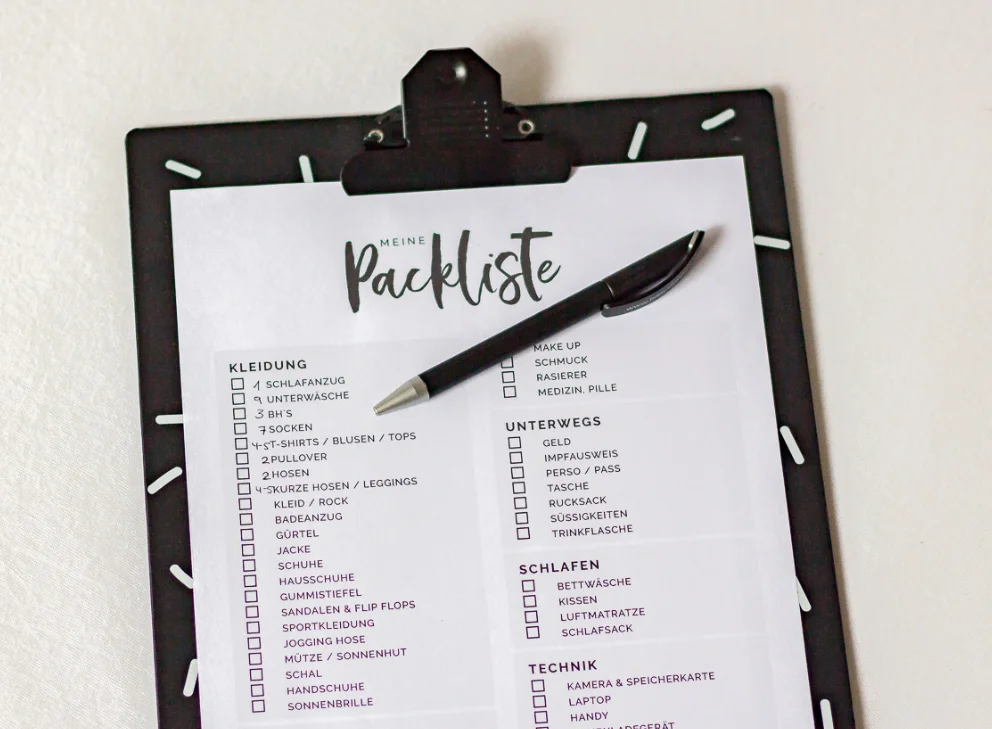 MEINE
Packliste
KLEIDUNG
1 SCHLAFANZUG
9 UNTERWÄSCHE
3 BH'S
7 SOCKEN
4-5 T-SHIRTS / BLUSEN / TOPS
2 PULLOVER
2 HOSEN
4-5 KURZE HOSEN / LEGGINGS
KLEID / ROCK
BADEANZUG
GÜRTEL
JACKE
SCHUHE
HAUSSCHUHE
GUMMISTIEFEL
SANDALEN & FLIP FLOPS
SPORTKLEIDUNG
JOGGING HOSE
MÜTZE / SONNENHUT
SCHAL
HANDSCHUHE
SONNENBRILLE
MAKE UP
SCHMUCK
RASIERER
MEDIZIN. PILLE
UNTERWEGS
GELD
IMPFAUSWEIS
PERSO / PASS
TASCHE
RUCKSACK
SÜSSIGKEITEN
TRINKFLASCHE
SCHLAFEN
BETTWÄSCHE
KISSEN
LUFTMATRATZE
SCHLAFSACK
TECHNIK
KAMERA & SPEICHERKARTE
LAPTOP
HANDY